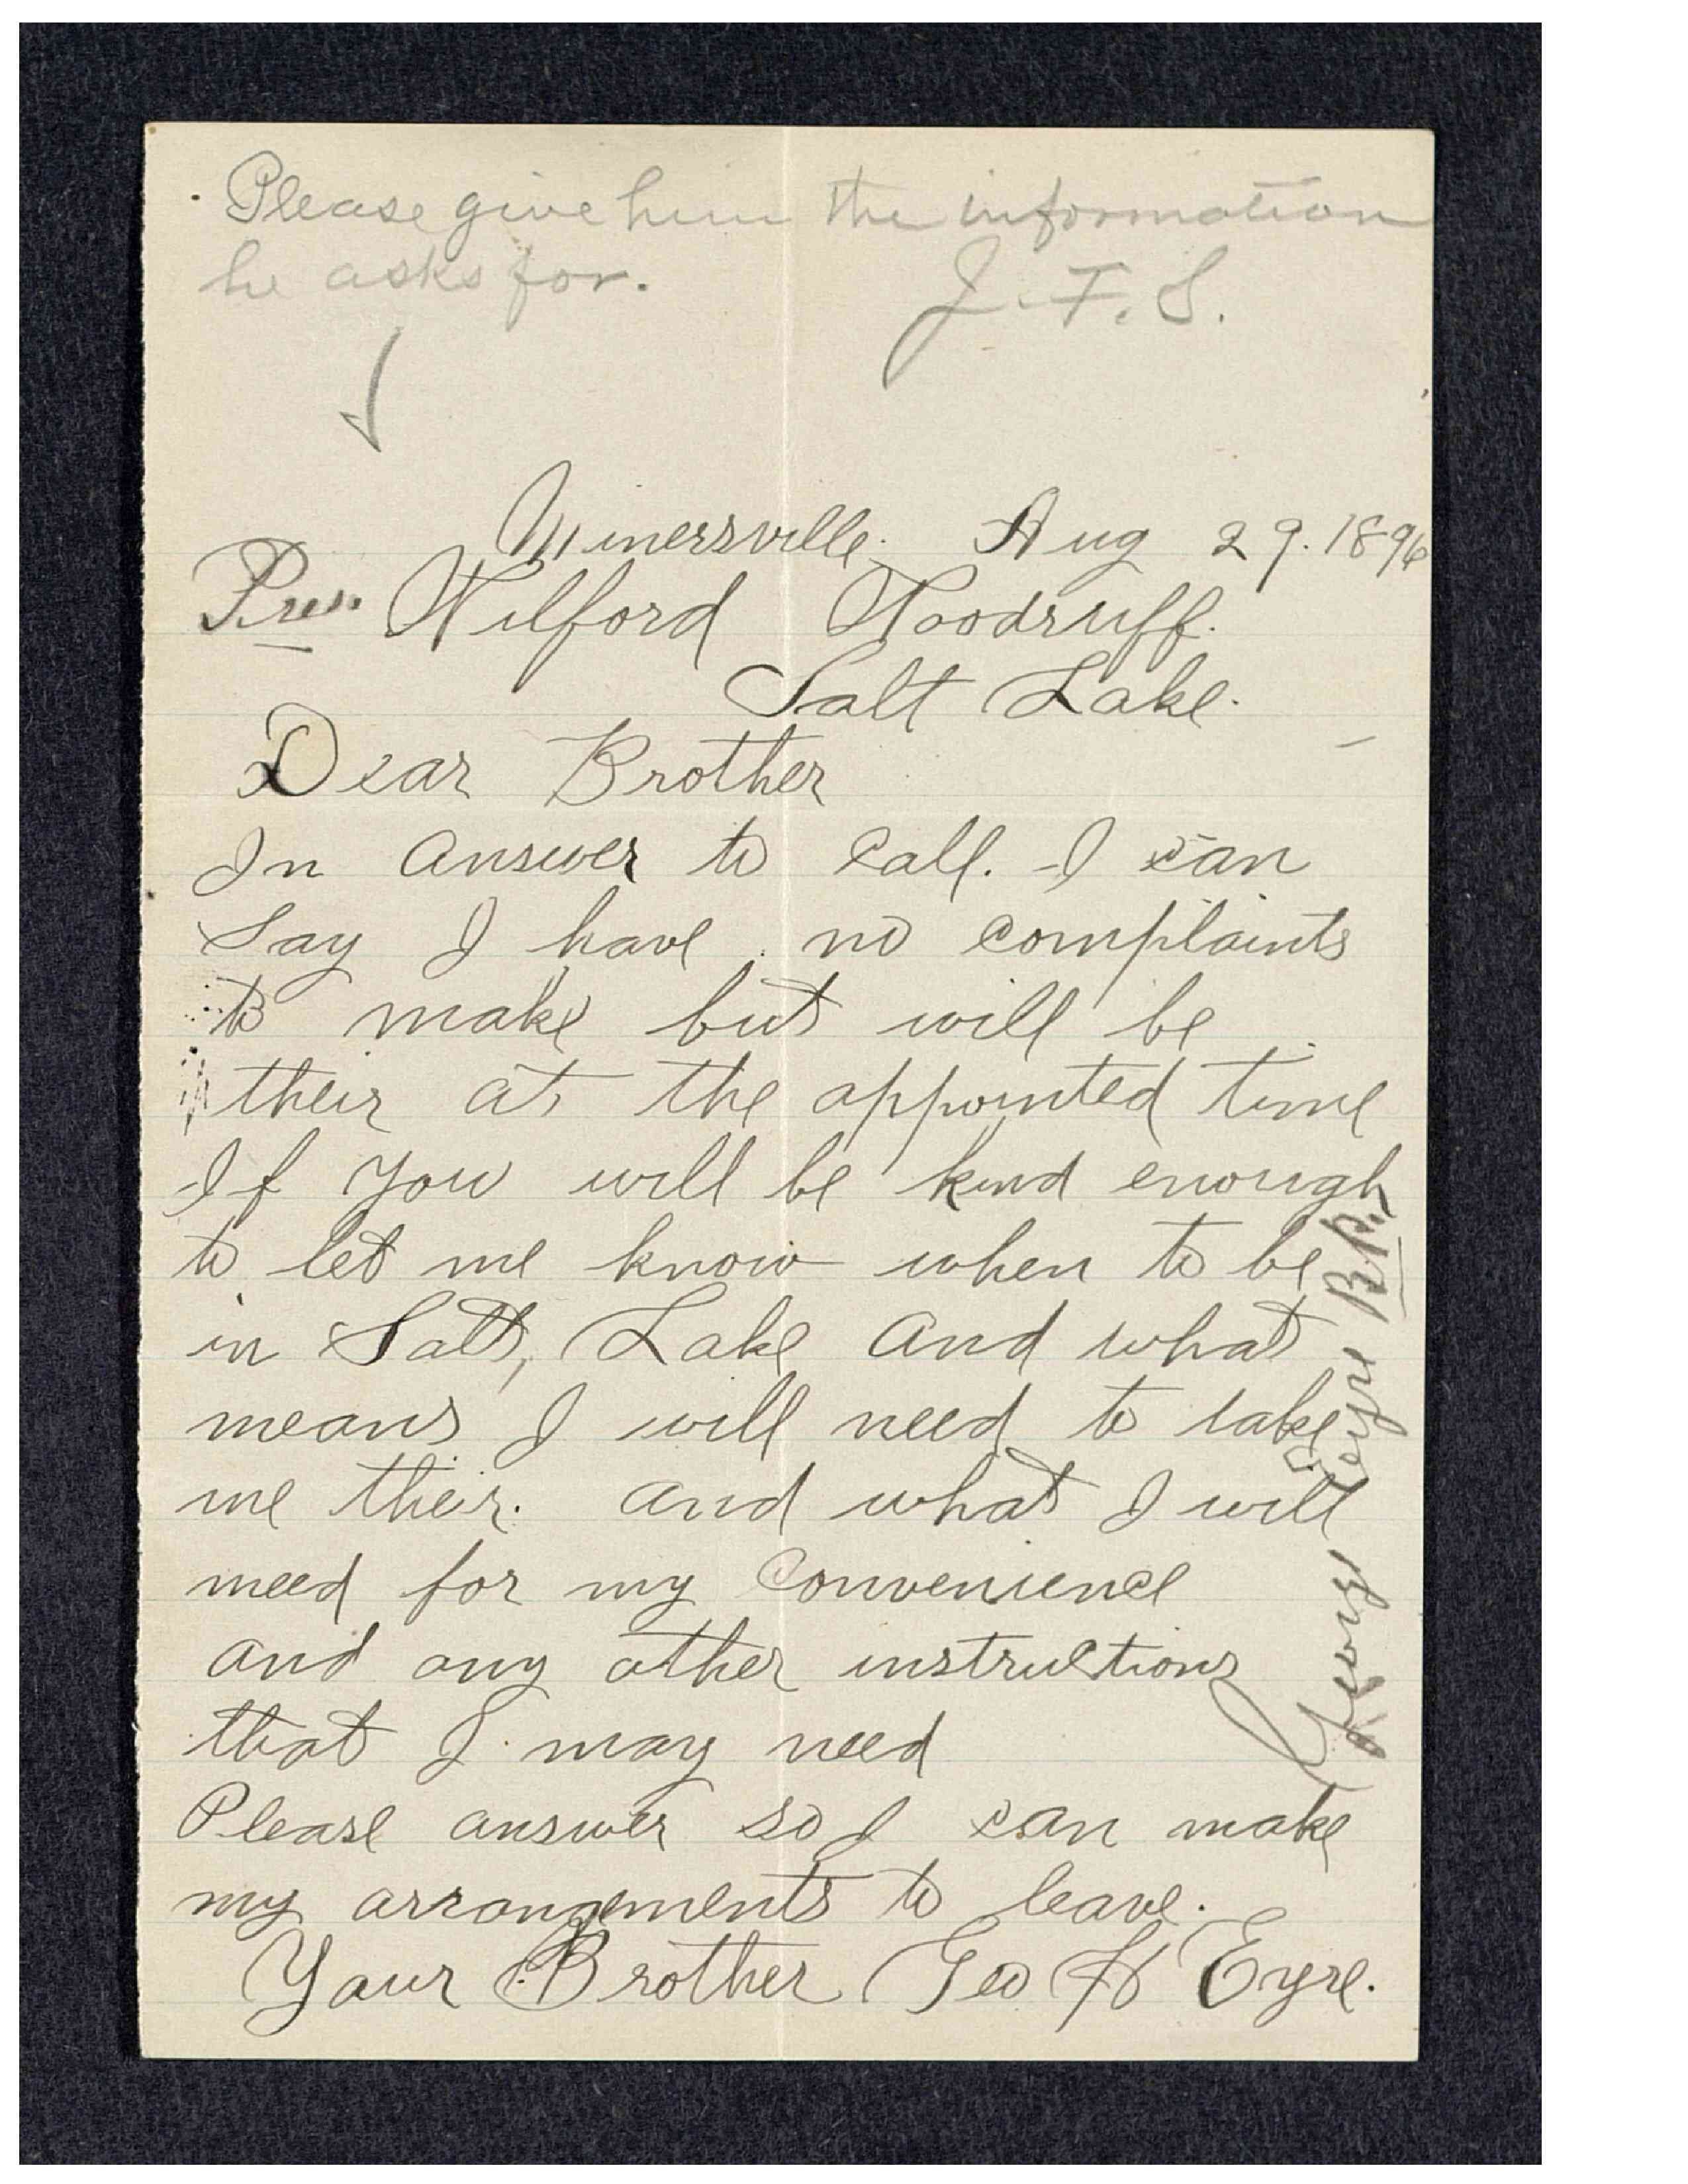 Please give him the information
he asks for.
J. F. S.
Minersville. Aug 29. 1896
Pres. Wilford Woodruff.
Salt Lake.
Dear Brother
In answer to call. I can
say I have no complaints
to make but will be
their at the appointed time
If you will be kind enough
to let me know when to be
in Salt, Lake and what
means I will need to take
me their. and what I will
need for my convenience
and any other instructions
that I may need
Please answer so I can make
my arrangements to leave.
Your Brother Geo H Eyre.
George Eyre Bp.